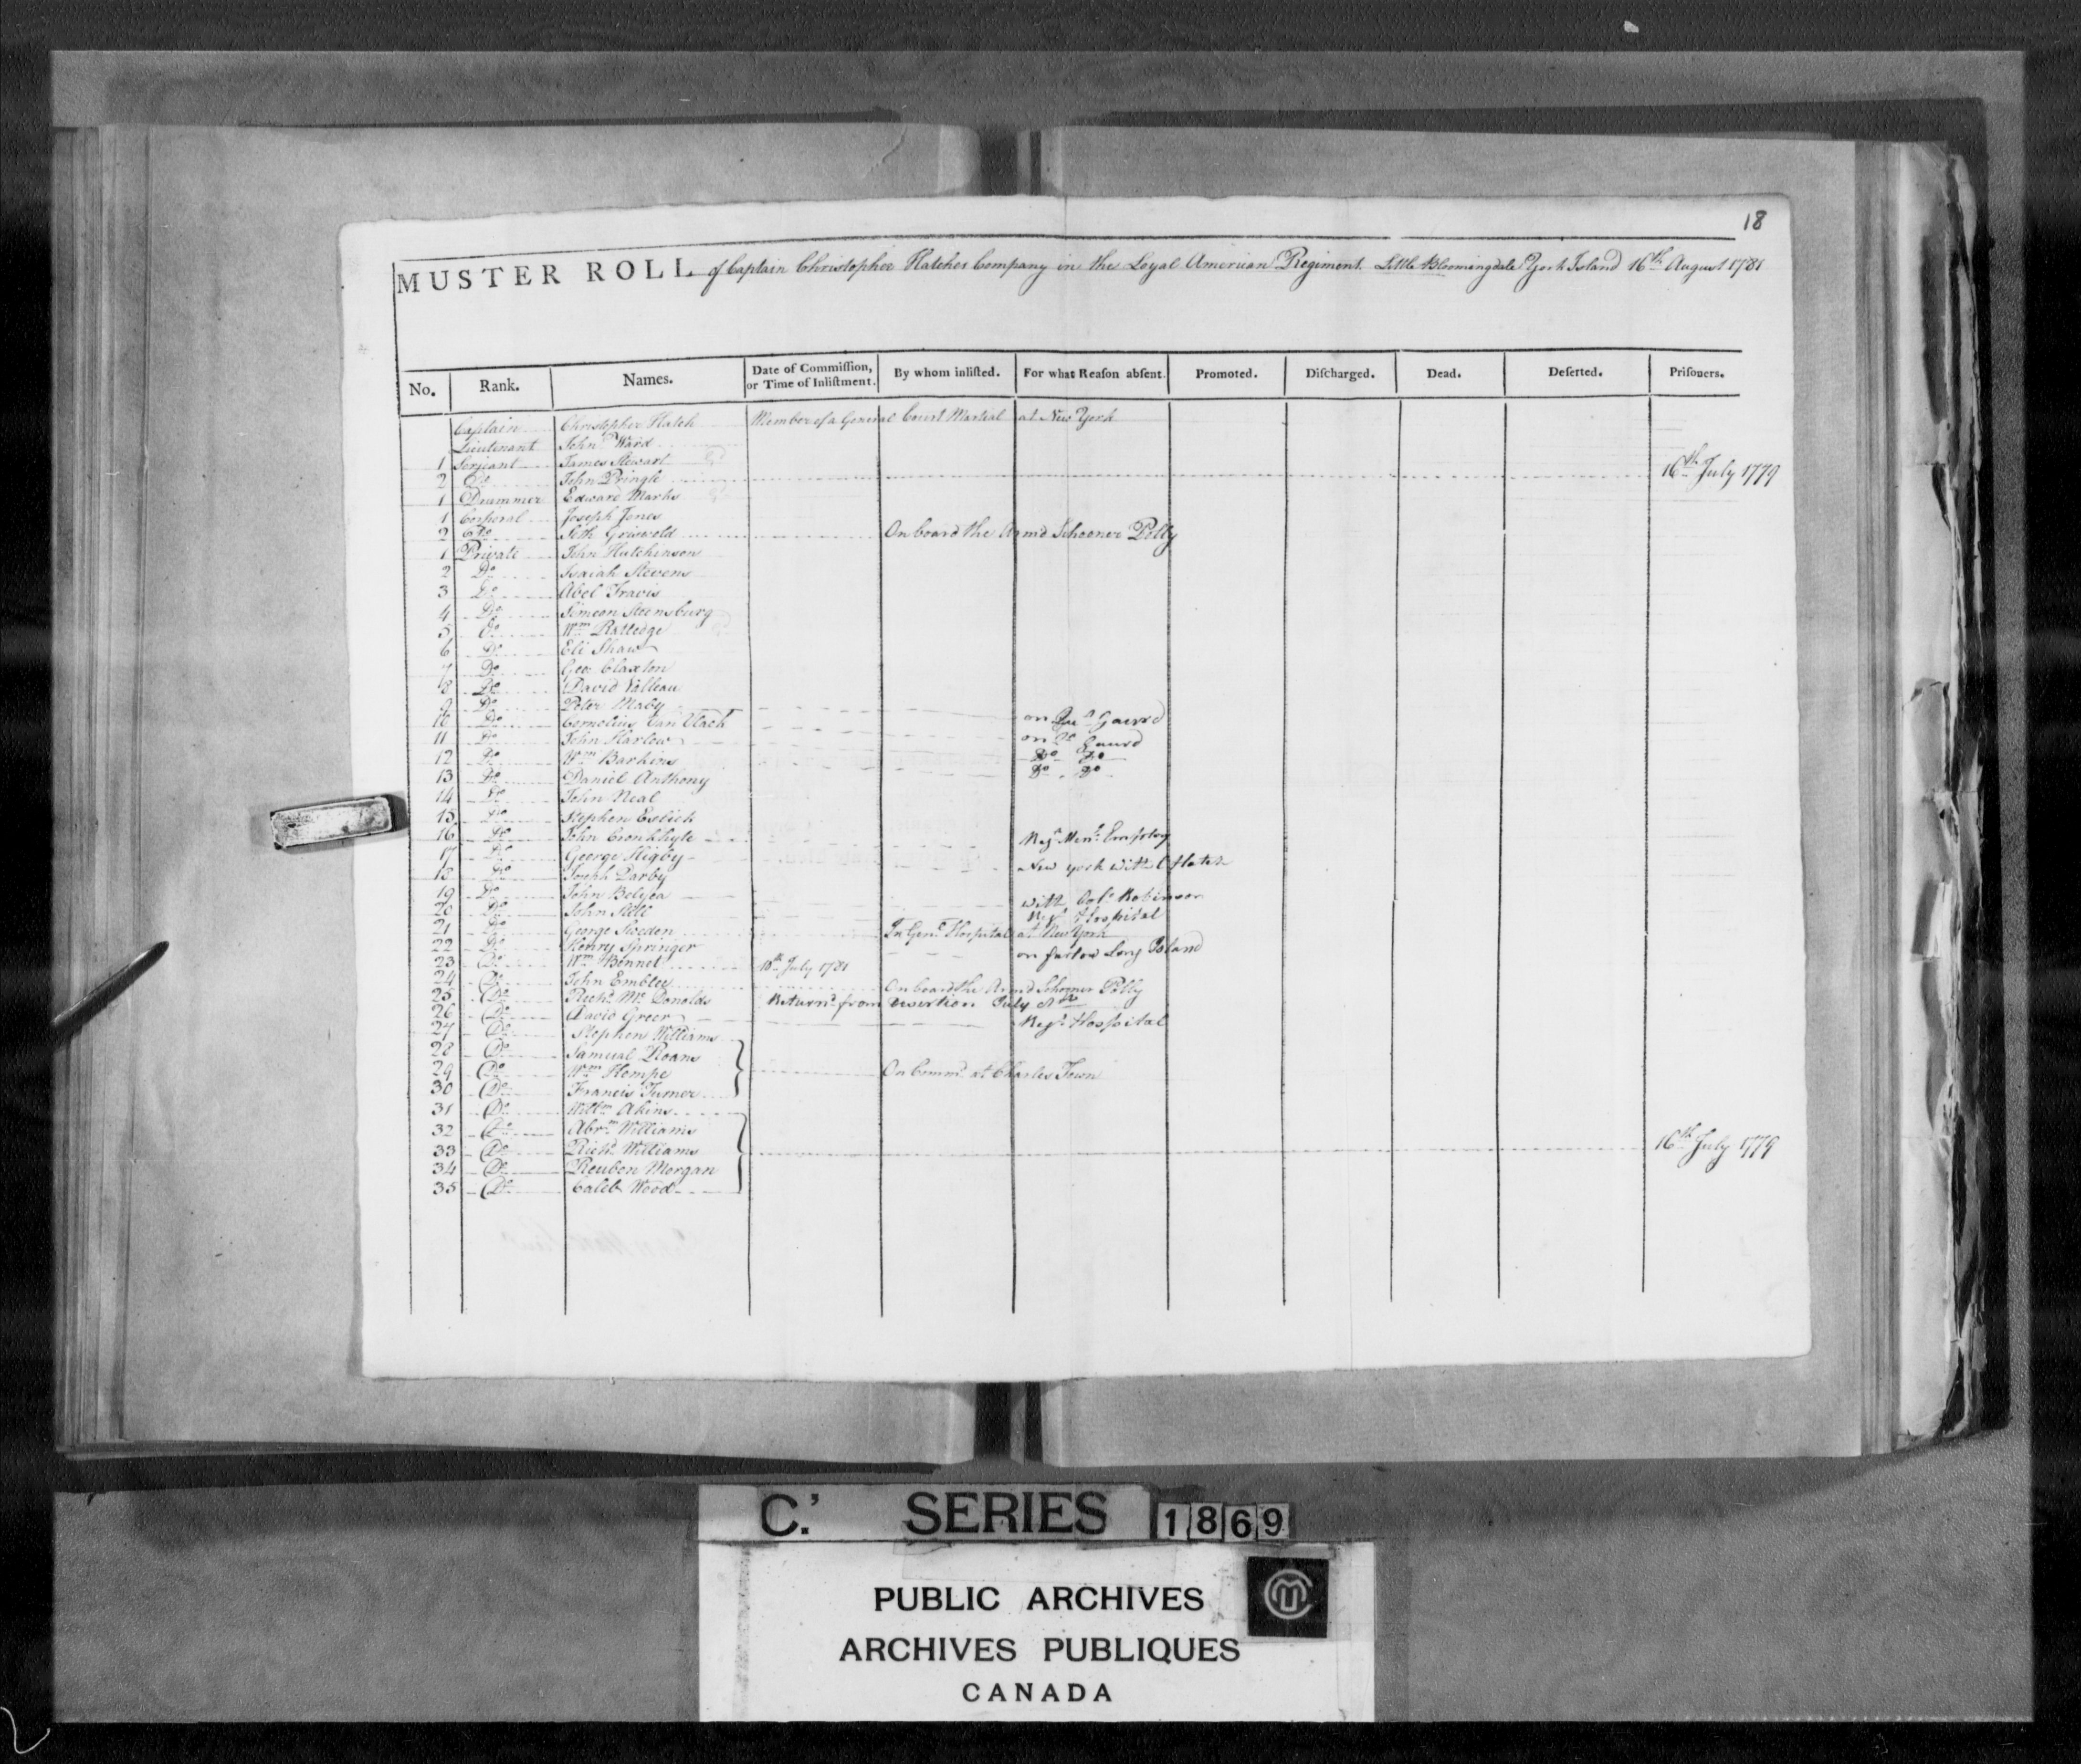 18
MUSTER ROLL of Captain Christopher Hatches Company in the Loyal American Regiment. Little Bloomingdale York Island 16th August 1781
No. Rank. Names. Date of Commission, or Time of Inlistment. By whom inlisted. For what Reason absent. Promoted. Discharged. Dead. Deserted. Prisoners.
Captain Christopher Hatch Member of a General Court Martial at New York
Lieutenant John Ward
1 Serjeant James Stewart
2 Do John Pringle 16th July 1779
1 Drummer Edward Marks
1 Corporal Joseph Jones
2 Do Seth Griswold On board the Arm'd Schooner Polly
1 Private John Hutchinson
2 Do Isaiah Stevens
3 Do Abel Travis
4 Do Simeon Steensburg
5 Do Wm Rattedge
6 Do Eli Shaw
7 Do Geo: Claxton
8 Do David Valleau
9 Do Peter Maby
10 Do Cornelius Van Vlack on Guard
11 Do John Harlow on Do Guard
12 Do Wm Barkins Do Do
13 Do Daniel Anthony Do Do
14 Do John Neal
15 Do Stephen Estich
16 Do John Cronkhyte
17 Do George Higby New york with C Hatch
18 Do Joseph Darby
19 Do John Belyea with Colo Robinson
20 Do John Still Regt Hospital
21 Do George Sweden In Genl Hospital at New York
22 Do Henry Springer on furlow Long Island
23 Do Wm Bennet 18th July 1781
24 Do John Emblee On board the Arm'd Schooner Polly
25 Do Richd Mc Donolds Returnd from Desertion July
26 Do David Greer Regt Hospital
27 Do Stephen Williams
28 Do Samual Roans
29 Do Wm Kempe On Commd at Charles Town
30 Do Francis Turner
31 Do Willm Akins
32 Do Abrm Williams
33 Do Richd Williams 16th July 1779
34 Do Reuben Morgan
35 Do Caleb Wood
C.' SERIES 1869
PUBLIC ARCHIVES
ARCHIVES PUBLIQUES
CANADA